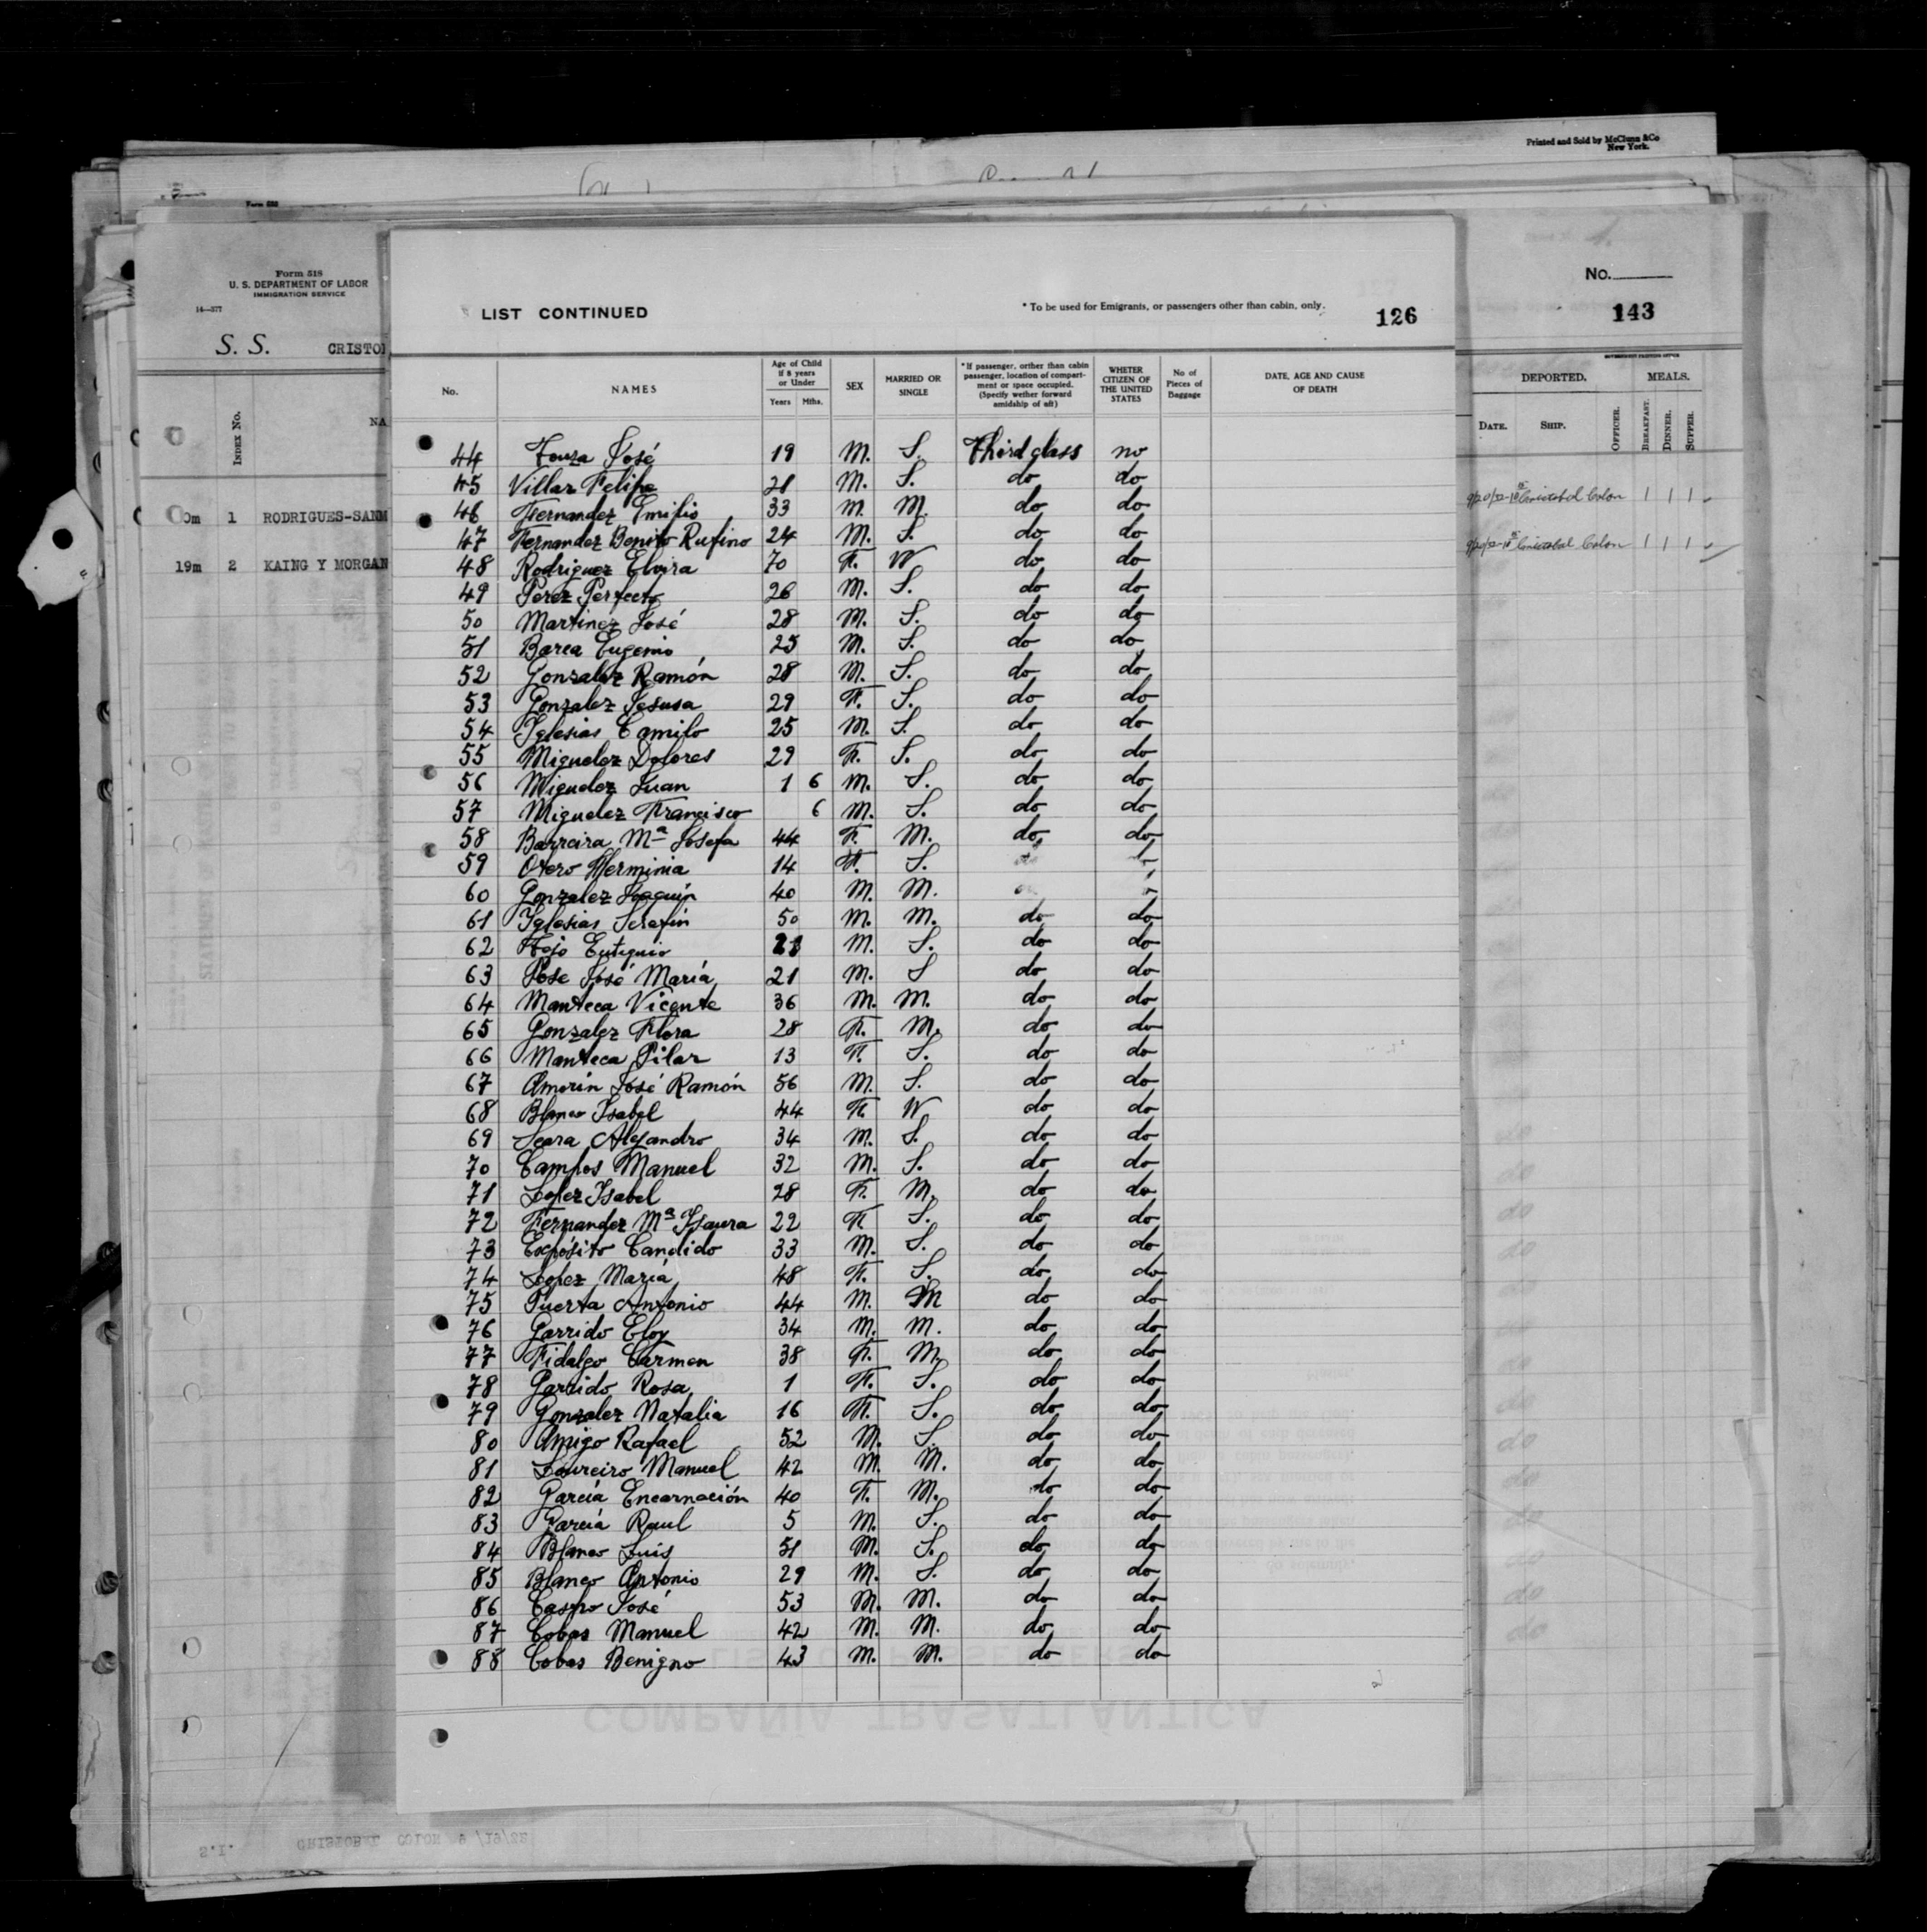 Printed and Sold by McClunn &Co
New York.
Form 518
U. S. DEPARTMENT OF LABOR
IMMIGRATION SERVICE
14—377
S. S. CRISTO
INDEX No.
NA
1 RODRIGUES-SANM
19m 2 KAING Y MORGAN
No.
143
GOVERNMENT PRINTING OFFICE
DEPORTED. MEALS.
DATE. SHIP. OFFICER. BREAKFAST. DINNER. SUPPER.
Cristobal Colon 1 1 1
Cristobal Colon 1 1 1
LIST CONTINUED
* To be used for Emigrants, or passengers other than cabin, only.
126
No. NAMES Age of Child if 8 years or Under Years Mths. SEX MARRIED OR SINGLE * If passenger, orther than cabin passenger, location of compartment or space occupied. (Specify wether forward amidship of aft) WHETER CITIZEN OF THE UNITED STATES No of Pieces of Baggage DATE, AGE AND CAUSE OF DEATH
44 Touza José 19 M. S. Third glass no
45 Villar Felipe 21 M. S. do do
46 Fernandez Emilio 33 M. M. do do
47 Fernandez Benito Rufino 24 M. S. do do
48 Rodriguez Elvira 70 F. W do do
49 Perez Perfecto 26 M. S. do do
50 Martinez José 28 M. S. do do
51 Barca Eugenio 25 M. S. do do
52 Gonzalez Ramón 28 M. S. do do
53 Gonzalez Jesusa 29 F. S. do do
54 Iglesias Camilo 25 M. S. do do
55 Miguelez Dolores 29 F. S. do do
56 Miguelez Juan 1 6 M. S. do do
57 Miguelez Francisco 6 M. S. do do
58 Barreira Mª Josefa 44 F. M. do do
59 Otero Herminia 14 F. S.
60 Gonzalez Joaquín 40 M. M.
61 Iglesias Serafin 50 M. M. do do
62 Eutiquio M. S. do do
63 Pose José María 21 M. S do do
64 Manteca Vicente 36 M. M. do do
65 Gonzalez Flora 28 F. M. do do
66 Manteca Pilar 13 F. S. do do
67 Amorin José Ramón 56 M. S. do do
68 Blanco Isabel 44 F. W do do
69 Seara Alejandro 34 M. S. do do
70 Campos Manuel 32 M. S. do do
71 Lopez Isabel 28 F. M. do do
72 Fernandez Mª Isaura 22 F. S. do do
73 Expósito Candido 33 M. S. do do
74 Lopez María 48 F. S. do do
75 Puerta Antonio 44 M. M do do
76 Garrido Eloy 34 M. M. do do
77 Fidalgo Carmen 38 F. M. do do
78 Garrido Rosa 1 F. S. do do
79 Gonzalez Natalia 16 F. S. do do
80 Amigo Rafael 52 M. S. do do
81 Loureiro Manuel 42 M. M. do do
82 García Encarnación 40 F. M. do do
83 García Raul 5 M. S. do do
84 Blanco Luis 51 M. S. do do
85 Blanco Antonio 29 M. S. do do
86 Castro José 53 M. M. do do
87 Cobas Manuel 42 M. M. do do
88 Cobas Benigno 43 M. M. do do
COMPAÑÍA TRASATLÁNTICA